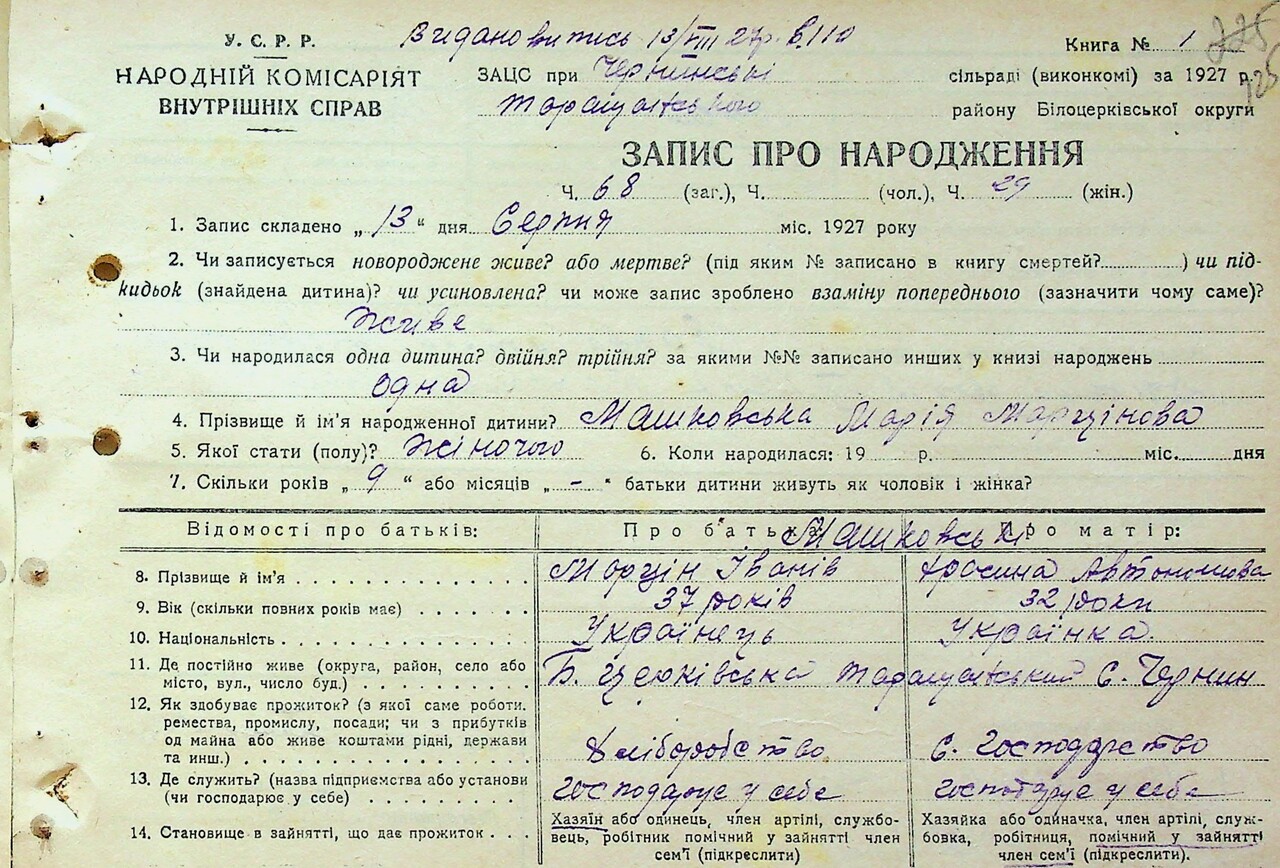 Видано витись 13/VIII 27р. в 110
У. С. Р. Р.
НАРОДНІЙ КОМІСАРІЯТ
ВНУТРІШНІХ СПРАВ
Книга № 1
225
ЗАЦС при Чернинські сільраді (виконкомі) за 1927 р.
Таращанського району Білоцерківської округи
ЗАПИС ПРО НАРОДЖЕННЯ
Ч. 68 (заг.), Ч. (чол.), Ч. 29 (жін.)
1. Запис складено „ 13 “ дня Серпня міс. 1927 року
2. Чи записується новороджене живе? або мертве? (під яким № записано в книгу смертей? ) чи під-
кидьок (знайдена дитина)? чи усиновлена? чи може запис зроблено взаміну попереднього (зазначити чому саме)?
Живе
3. Чи народилася одна дитина? двійня? трійня? за якими №№ записано инших у книзі народжень
одна
4. Прізвище й ім'я народженної дитини? Машковська Марія Марцінова
5. Якої стати (полу)? Жіночого 6. Коли народилася: 19 р. міс. дня
7. Скільки років „ 9 “ або місяців „ - “ батьки дитини живуть як чоловік і жінка?
Відомості про батьків: Про батька: Про матір:
Машковські
8. Прізвище й ім'я Марцін Іванів Фросина Автономова
9. Вік (скільки повних років має) 37 років 32 роки
10. Національність Українець Українка.
11. Де постійно живе (округа, район, село або
місто, вул., число буд.) Б. Церківська Таращанський С. Чернин
12. Як здобуває прожиток? (з якої саме роботи.
ремества, промислу, посади; чи з прибутків
од майна або живе коштами рідні, держави
та инш.) Хліборобство С. Господарство
13. Де служить? (назва підприємства або установи
(чи господарює у себе) господарує у себе господарує у себе
14. Становище в зайнятті, що дає прожиток
Хазяїн або одинець, член артілі, службо-
вець, робітник помічний у зайнятті член
сем'ї (підкреслити)
Хазяйка або одиначка, член артілі, служ-
бовка, робітниця, помічний у зайнятті
член сем'ї (підкреслити).